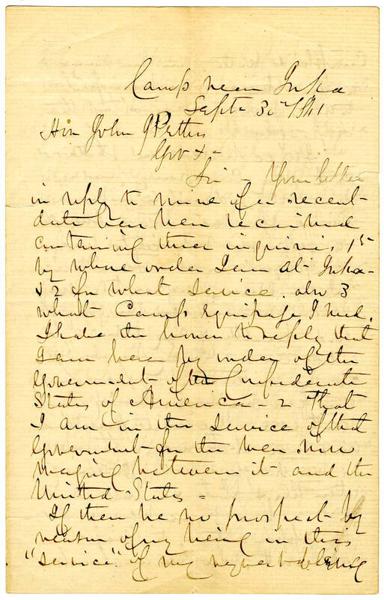 Camp near Iuka
Sept 30th/61
Hon John J Pettus
Gov &-
Sir - Your letter
in reply to mine of a recent
date has been received
containing three inquiries, 1st
by whose order I am at Iuka-
& 2 for what service. also 3
what Camp equipage I need.
I have the honor to reply that
I am here by order of the
Government of the Confederate
States of America - 2 That
I am in the service of that
Government for the war now
waging between it and the
United States -
If there be no prospect by
reason of my being in this
"service" of my request being